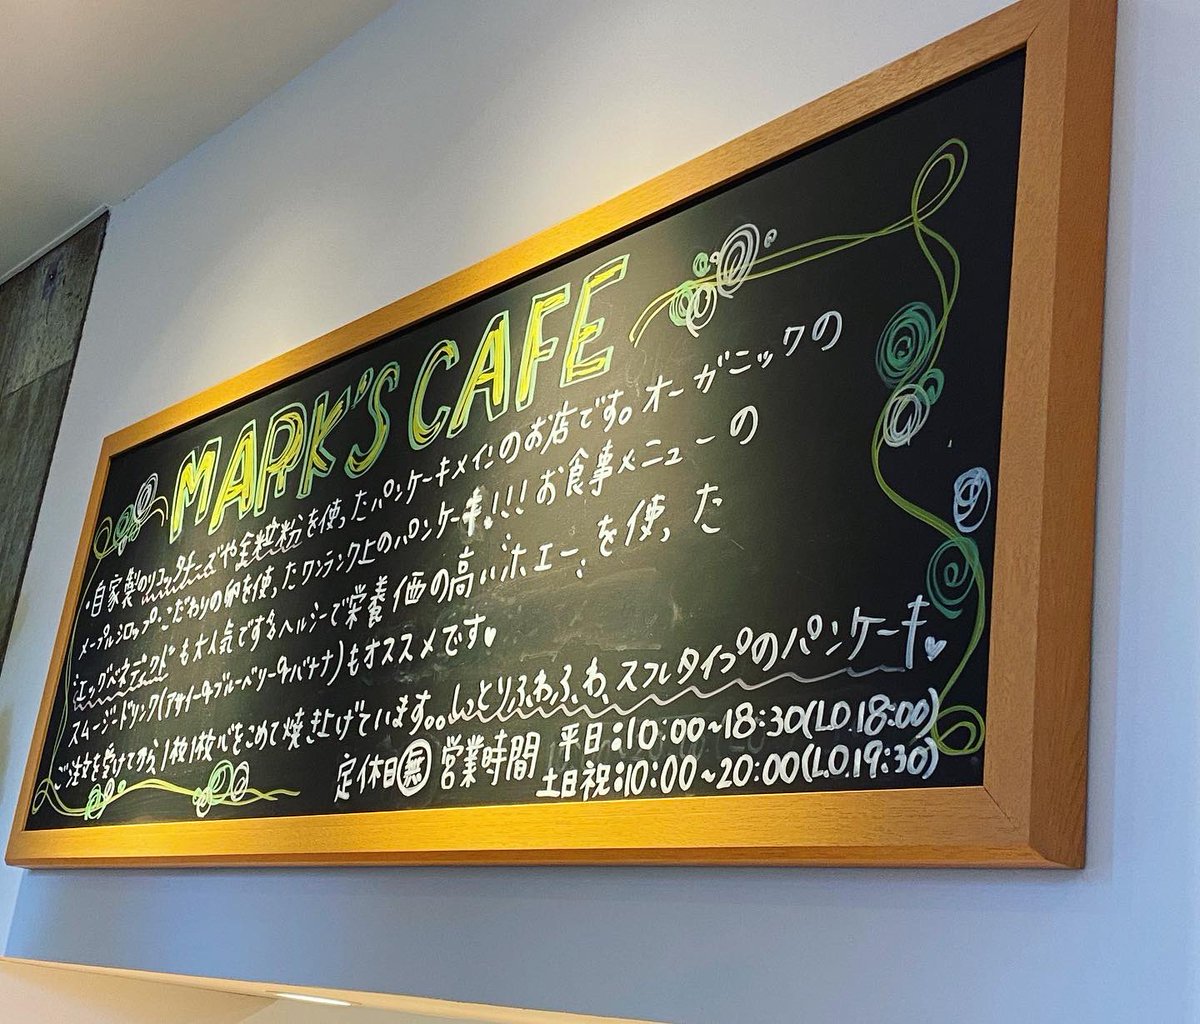 MARK'S CAFE
・自家製のリコッタチーズや全粒粉を使ったパンケーキメインのお店です。オーガニックの
メープルシロップ・こだわりの卵を使ったワンランク上のパンケーキ!!!お食事メニューの
"エッグベネディクト"も大人気です!ヘルシーで栄養価の高い"ホエー"を使った
スムージードリンク(アサイー・ブルーベリー・バナナ)もオススメです♥
ご注文を受けてから、1枚1枚心をこめて焼き上げています。。しっとりふわふわ、スフレタイプのパンケーキ♥
定休日㊇無 営業時間 平日:10:00~18:30(L.O.18:00)
土日祝:10:00~20:00(L.O.19:30)